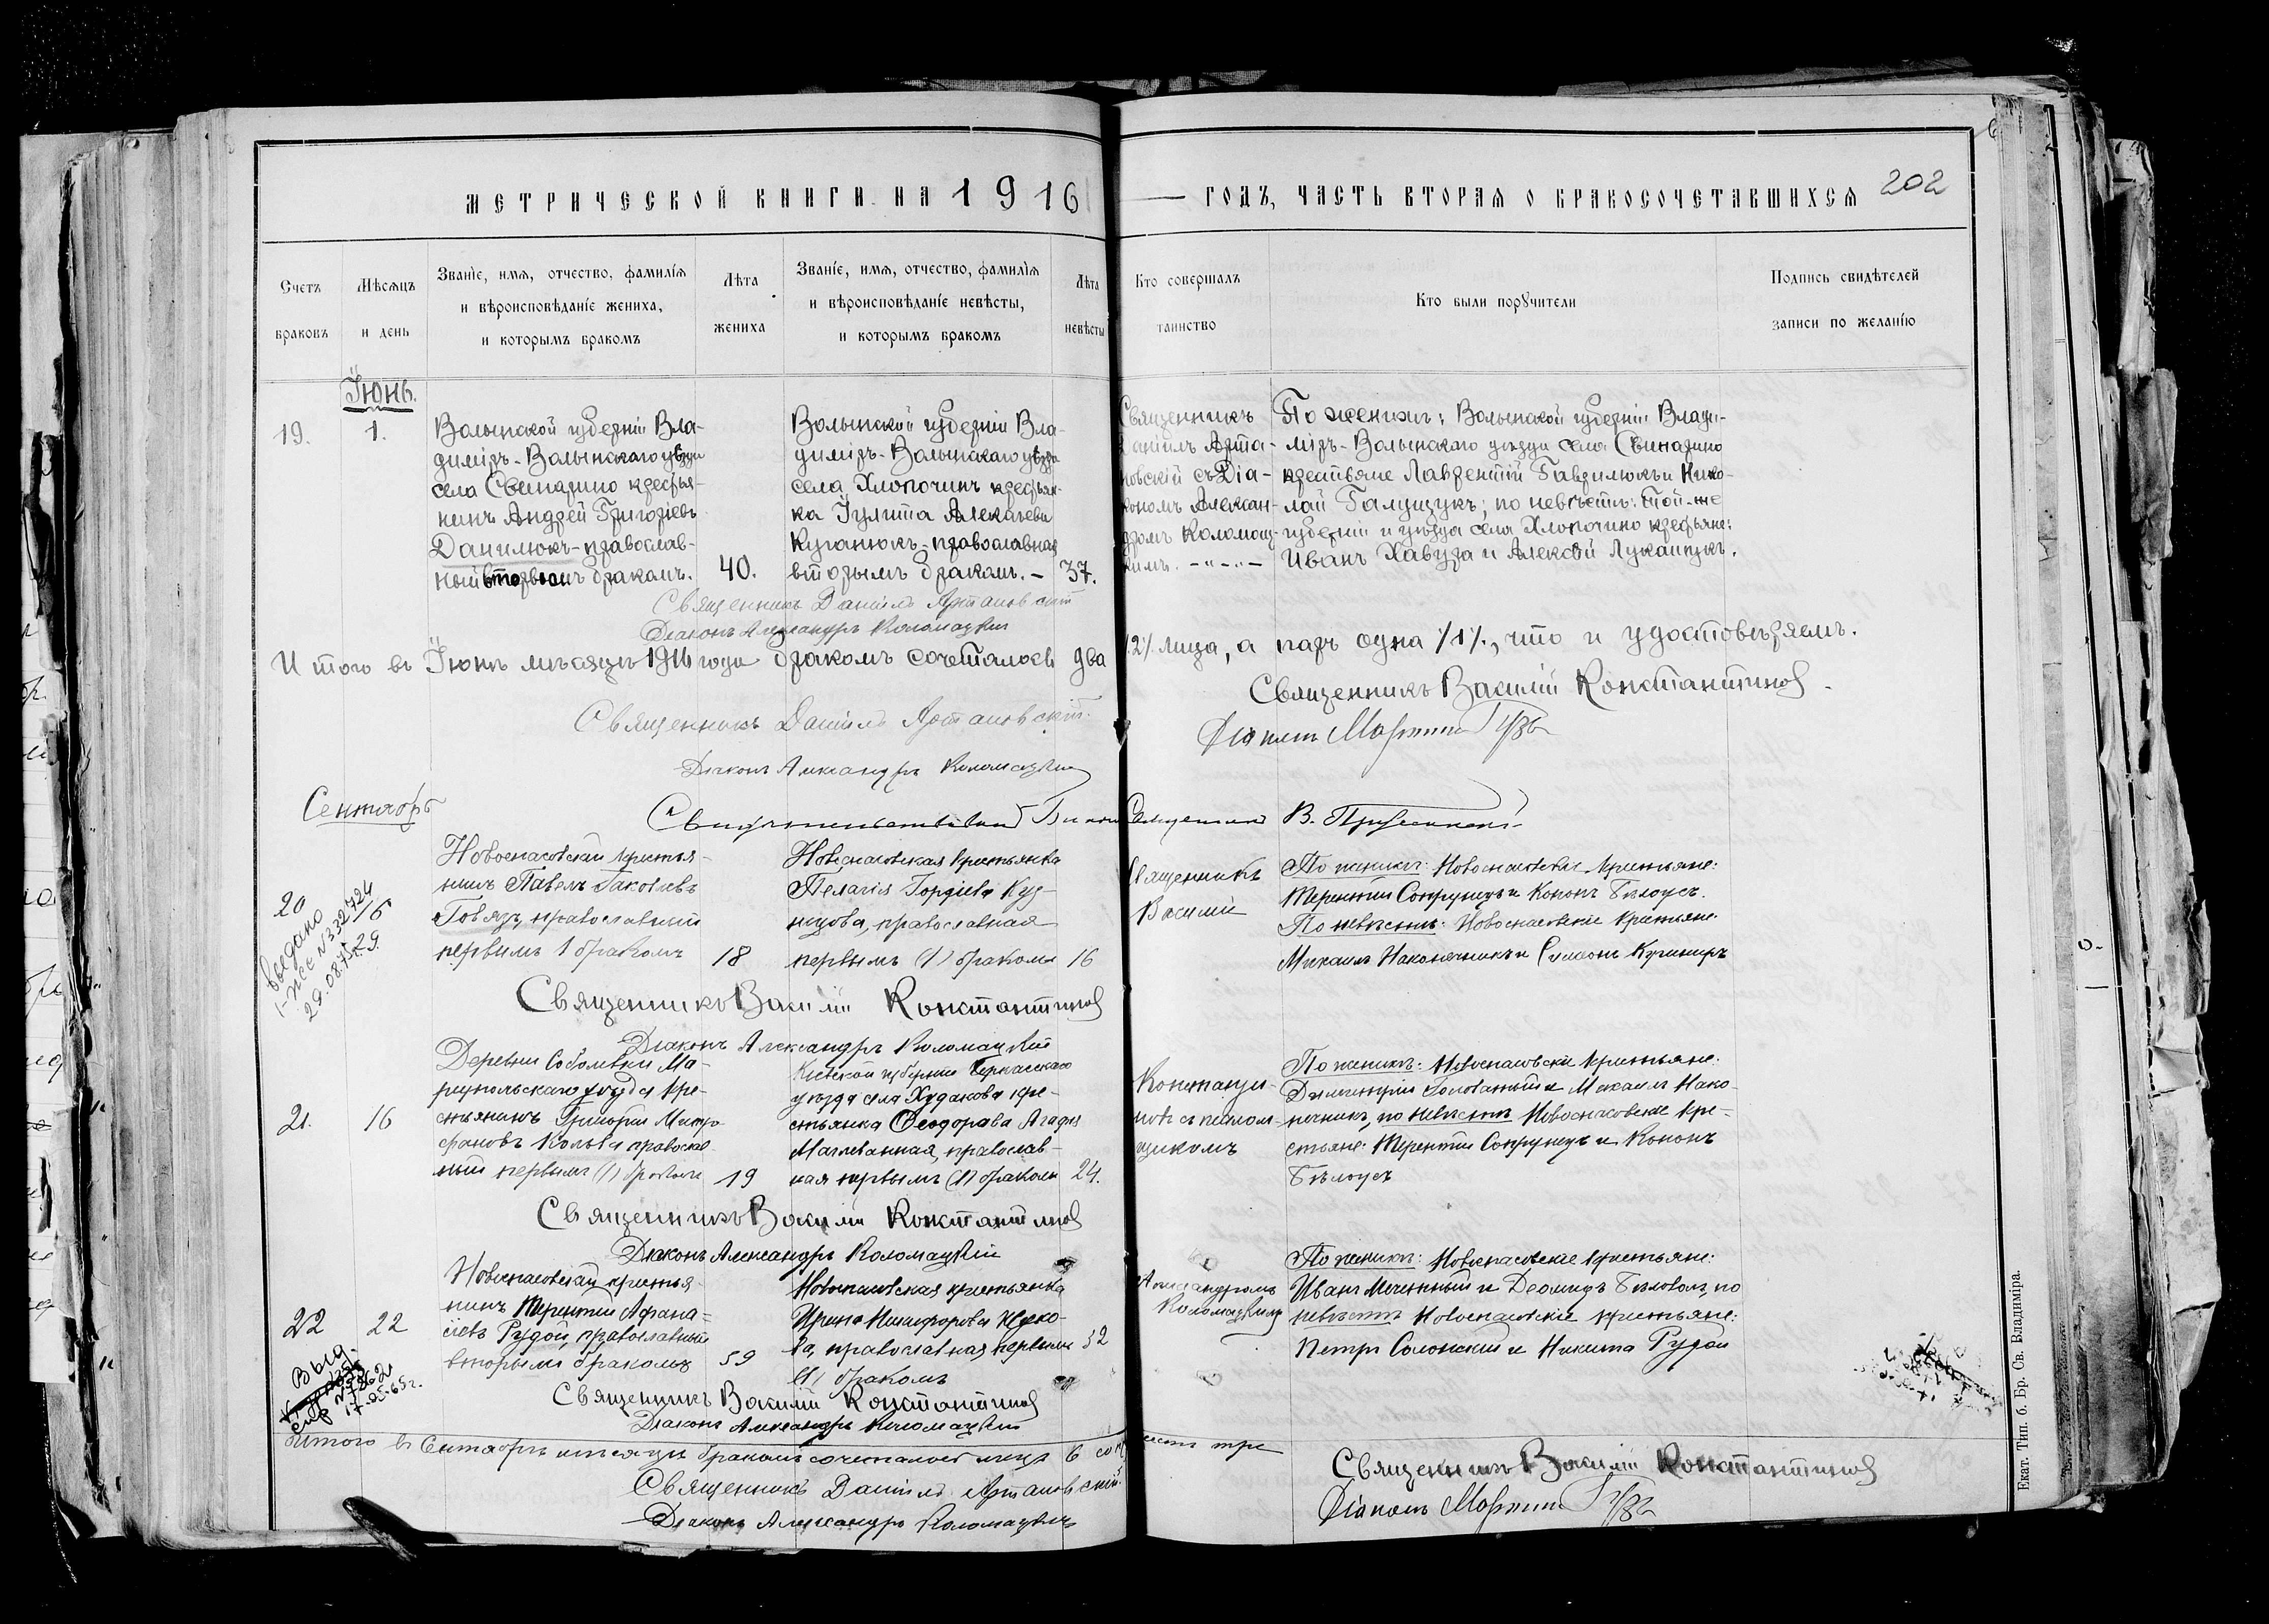 МЕТРИЧЕСКОЙ КНИГИ НА 1916
ГОДЪ, ЧАСТЬ ВТОРАЯ О БРАКОСОЧЕТАВШИХСЯ
202
Счетъ
браковъ
Мѣсяцъ
и день
Званіе, имя, отчество, фамилія
и вѣроисповѣданіе жениха,
и которымъ бракомъ
Лѣта
жениха
Званіе, имя, отчество, фамилія
и вѣроисповѣданіе невѣсты,
и которымъ бракомъ
Лѣта
невѣсты
Кто совершалъ
таинство
Кто были поручители
Подпись свидѣтелей
записи по желанію
Іюнь.
19.
1.
Волынской губерніи Вла-
диміръ-Волынскаго уѣзда
села Свинарино крестья-
нинъ Андрей Григоріевъ
Данилюкъ-православ-
ный вторымъ бракомъ.
40.
Волынской губерніи Вла-
диміръ-Волынскаго уѣзда
села Хлопочинъ крестьян-
ка Іулита Алексѣева
православная
вторымъ бракомъ. –
37.
Священникъ
Даніилъ Арта-
новскій съ Діа-
кономъ Алексан-
дромъ Коломац-
кимъ.
По женихѣ: Волынской губерніи Влади-
міръ-Волынскаго уѣзда села Свинарино
крестьяне Лаврентій Гаврилюкъ и Нико-
лай Галущукъ; по невѣстѣ: той-же
губерніи и уѣзда села Хлопочино крестьяне:
Иванъ Хавура и Алексѣй Лукашукъ.
Священникъ Даніилъ Артановскій
Діаконъ Александръ Коломацкій
Итого въ Іюнѣ мѣсяцѣ 1916 года бракомъ сочеталось два
/2/. лица, а паръ одна /1/., что и удостовѣряемъ.
Священникъ Василій Константиновъ
Священникъ Даніилъ Артановскій.
Діаконъ
Діаконъ Александръ Коломацкій
Сентябрь
Священникъ В.
20
15
введано
29.08.
Новоспасовскій крестья-
нинъ Павелъ Іаковлевъ
Говязъ, православный
первымъ 1 бракомъ
18
Новоспасовская крестьянка
Пелагія Гордіева Куз-
нецова, православная
первымъ (1) бракомъ
16
Священникъ
Василій
По женихѣ: Новоспасовскіе крестьяне:
Терентій Сопрунецъ и Кононъ Бѣлоусъ.
По невѣстѣ: Новоспасовскіе крестьяне:
Михаилъ Наконечникъ и Симеонъ Кушниръ
Священникъ Василій Константиновъ
Діаконъ Александръ Коломацкій
21.
16
Деревни Соболевки Ма-
ріупольскаго уѣзда кре-
стьянинъ Григорій Митро-
фановъ православ-
ный первымъ (1) бракомъ
19
Кіевской губерніи Черкасскаго
уѣзда села Худякова кре-
стьянка
православ-
ная первымъ (1) бракомъ
24.
Константи-
новъ съ псалом-
щикомъ
По женихѣ: Новоспасовскіе крестьяне:
Димитрій Голованый и Михаилъ Нако-
нечникъ, по невѣстѣ Новоспасовскіе кре-
стьяне: Терентій Сопрунецъ и Кононъ
Бѣлоусъ
Священникъ Василій Константиновъ
Діаконъ Александръ Коломацкій
22
22
Выд.
17.05.65г.
Новоспасовскій крестья-
нинъ Терентій Афана-
сіевъ Рудой, православный
вторымъ бракомъ
59
Новоспасовская крестьянка
Ирина Никифорова
православная первымъ
(1) бракомъ
52
Александромъ
Коломацкимъ
По женихѣ: Новоспасовскіе крестьяне:
Иванъ и Деомидъ Бѣловолъ, по
невѣстѣ Новоспасовскіе крестьяне:
Петръ Солонскій и Никита Рудой
Священникъ Василій Константиновъ
Діаконъ Александръ Коломацкій
Итого въ Сентябрѣ мѣсяцѣ бракомъ сочеталось лицъ 6
Священникъ Василій Константиновъ
Священникъ Даніилъ Артановскій.
Діаконъ
Діаконъ Александръ Коломацкій
Екат. Тип. б. Бр. Св. Владиміра.